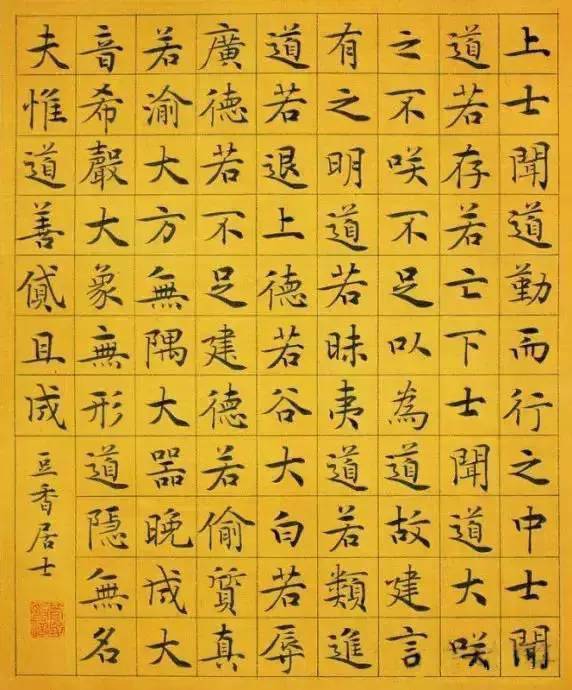 上士聞道勤而行之中士聞
道若存若亡下士聞道大咲
之不咲不足以為道故建言
有之明道若昧夷道若類進
道若退上德若谷大白若辱
廣德若不足建德若偷質真
若渝大方無隅大器晚成大
音希聲大象無形道隱無名
夫惟道善貸且成
豆香居士